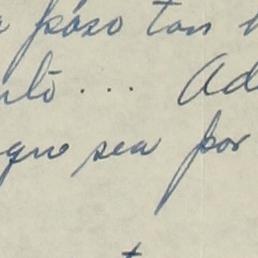 paso tan
... Ad
que sea por